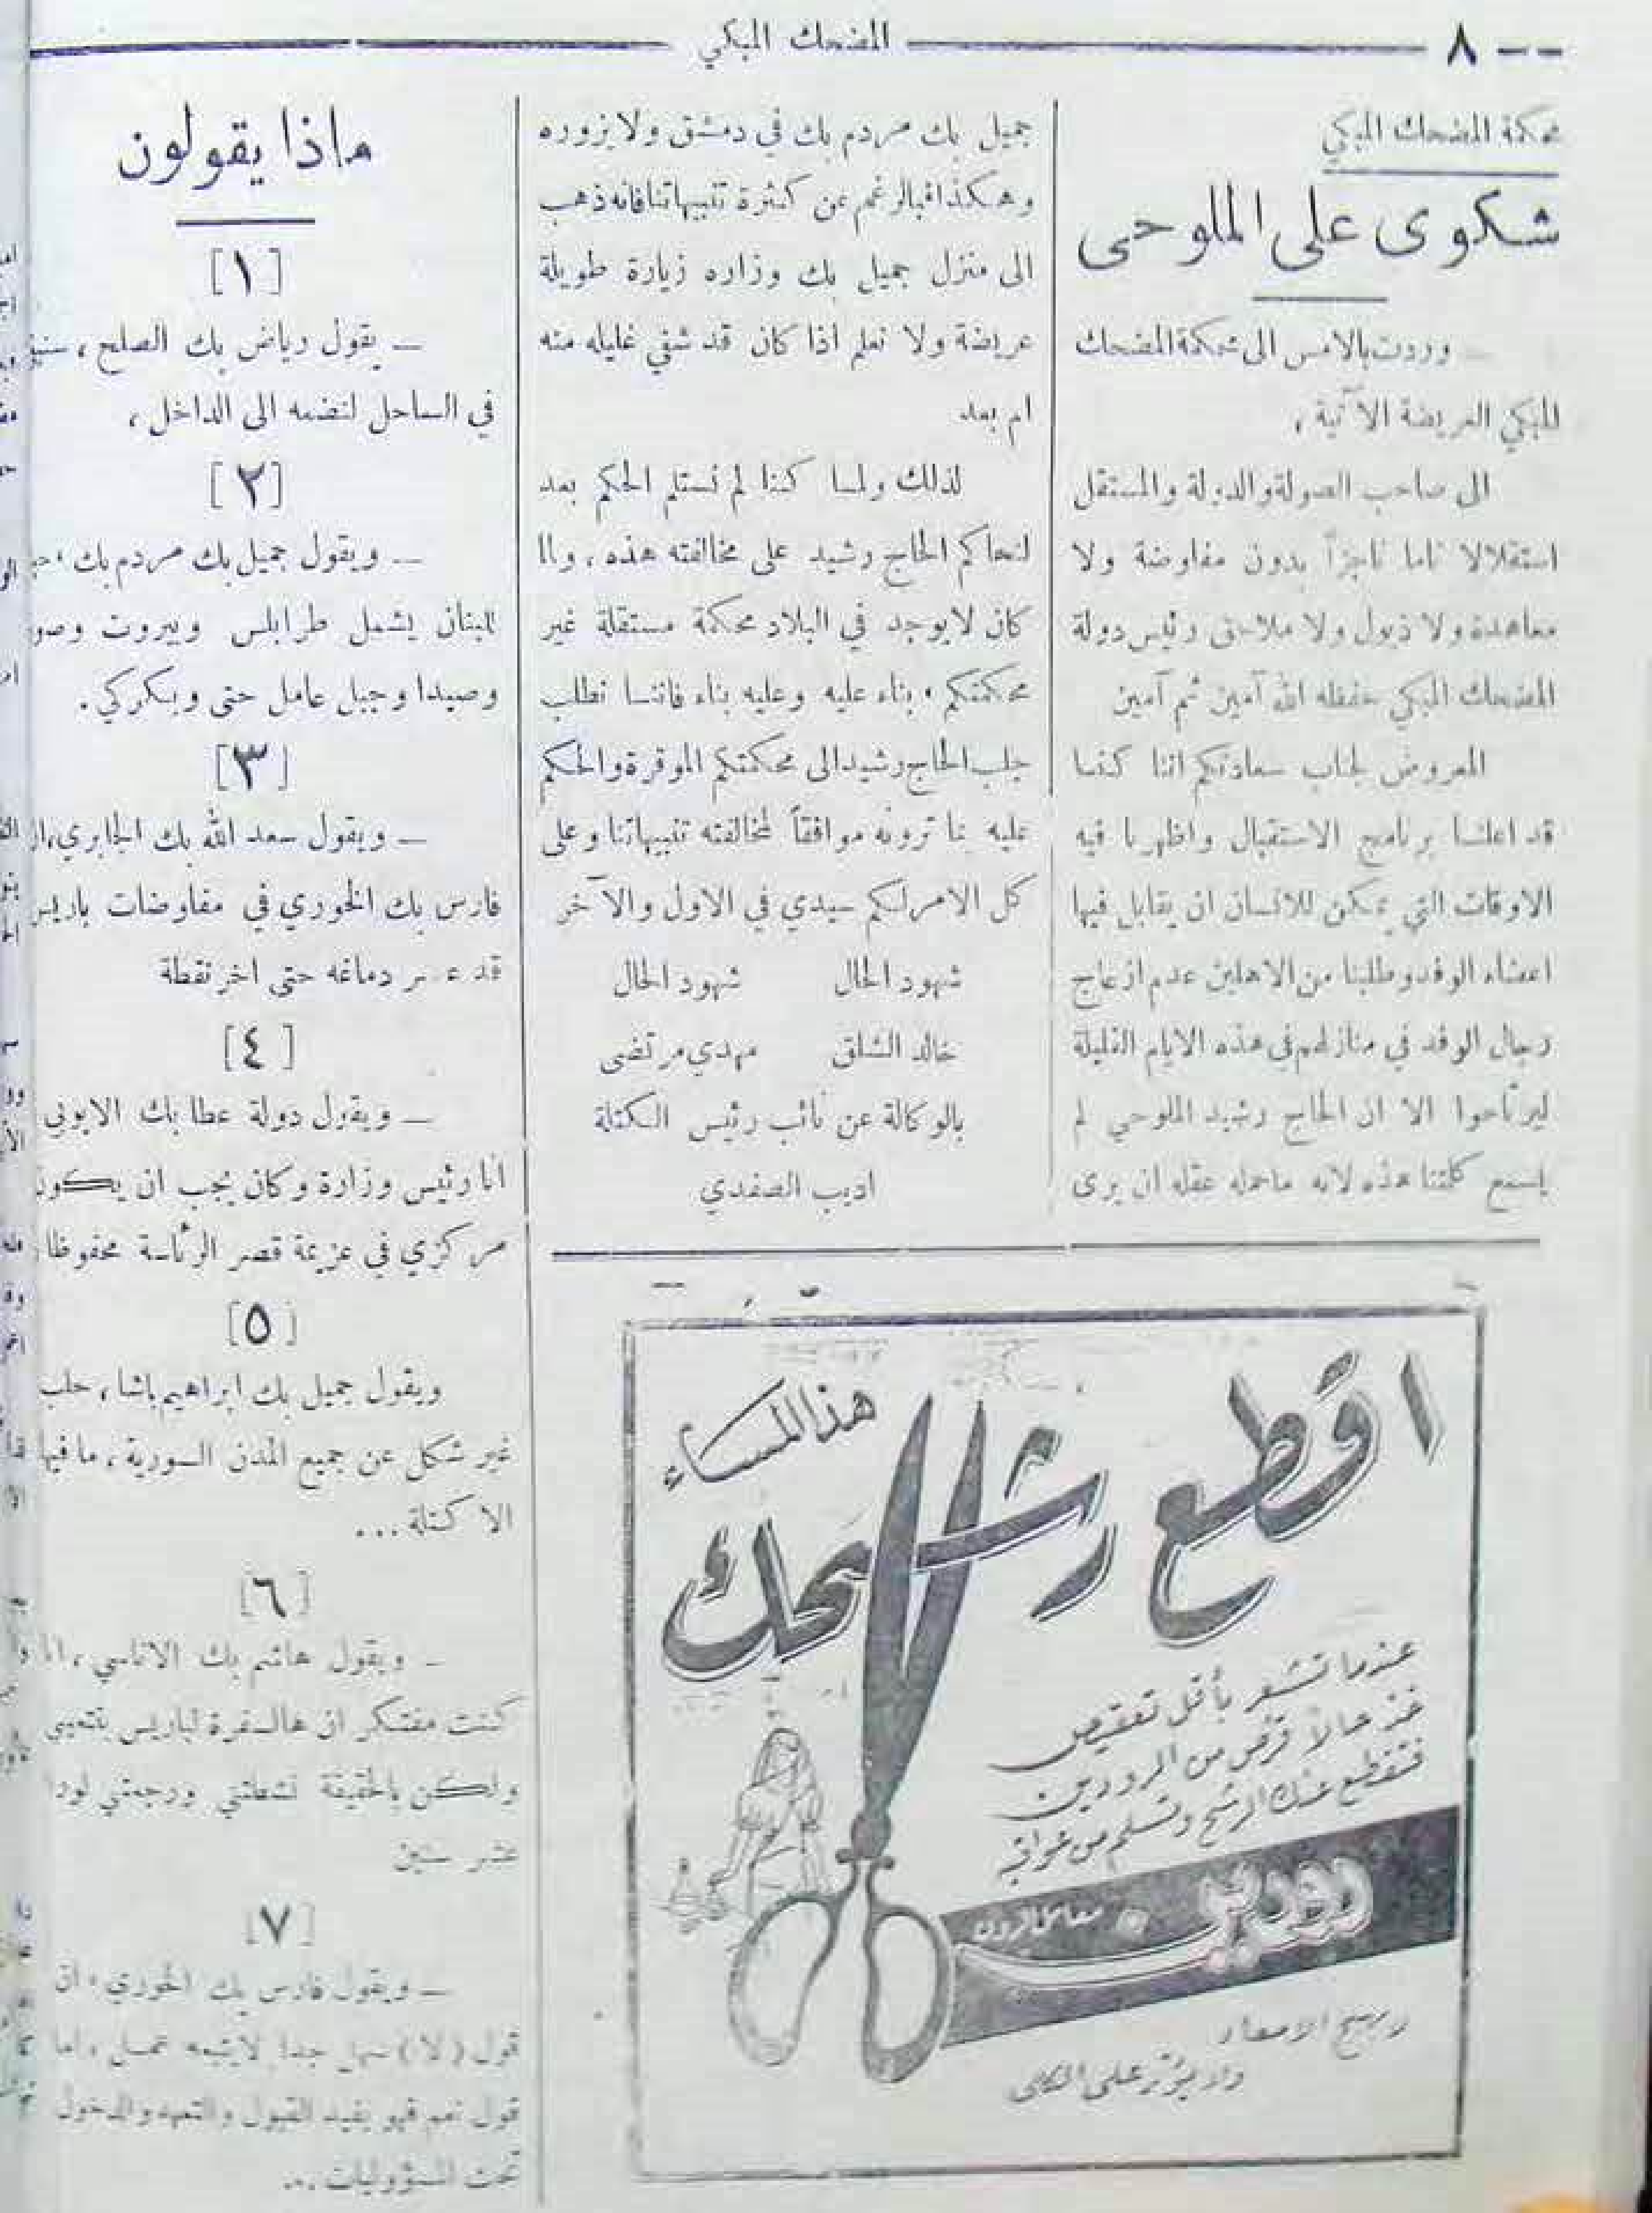 ٨ --
المضحك المبكي
محكمة المضحك المبكي
شكوى على الملوحي
— وردت بالامس الى محكمة المضحك
المبكي العريضة الآتية ،
الى صاحب الصولة والدولة والمستقل
استقلالا تاما ناجزاً بدون مفاوضة ولا
معاهدة ولا ذيول ولا ملاحق رئيس دولة
المضحك المبكي حفظه الله آمين ثم آمين
المعروض لجناب سعادتكم اننا كنا
قد اعلنا برنامج الاستقبال واظهرنا فيه
الاوقات التي يمكن للانسان ان يقابل فيها
اعضاء الوفد وطلبنا من الاهلين عدم ازعاج
رجال الوفد في منازلهم في هذه الايام القليلة
ليرتاحوا الا ان الحاج رشيد الملوحي لم
يسمع كلمتنا هذه لانه ماحمله عقله ان يرى
جميل بك مردم بك في دمشق ولا يزوره
وهكذا فبالرغم عن كثرة تنبيهاتنا فانه ذهب
الى منزل جميل بك وزاره زيارة طويلة
عريضة ولا نعلم اذا كان قد شفي غليله منه
ام بعد
لذلك ولما كنا لم نستلم الحكم بعد
لنحاكم الحاج رشيد على مخالفته هذه ، ولما
كان لا يوجد في البلاد محكمة مستقلة غير
محكمتكم ، بناء عليه وعليه بناء فاننا نطلب
جلب الحاج رشيد الى محكمتكم الموقرة والحكم
عليه بما ترونه موافقاً لمخالفته تنبيهاتنا وعلى
كل الامر لكم سيدي في الاول والآخر
شهود الحال شهود الحال
خالد الشلق مهدي مرتضى
بالوكالة عن نائب رئيس الكتلة
اديب الصفدي
اقطع
رشحك
هذا المساء
عندما تشعر بأقل تعقيص
خذ حالاً قرص من الرودين
فتقطع عنك الرشح وتسلم من عواقبه
رودين
معامل الرون
وزهيد الاسعار
ولا يؤثر على الكلى
ماذا يقولون
[١]
— يقول رياض بك الصلح ،
في الساحل لنضمه الى الداخل ،
[٢]
— ويقول جميل بك مردم بك ،
لبنان يشمل طرابلس وبيروت وصو
وصيدا وجبل عامل حتى وبكركي .
[٣]
— ويقول سعد الله بك الجابري ،
فارس بك الخوري في مفاوضات باريس
قد عصر دماغه حتى اخر نقطة
[٤]
— ويقول دولة عطا بك الايوبي
انا رئيس وزارة وكان يجب ان يكون
مركزي في عزيمة قصر الرئاسة محفوظا
[٥]
ويقول جميل بك ابراهيم باشا ، حلب
غير شكل عن جميع المدن السورية ، ما فيها
الا كتلة ...
[٦]
— ويقول هاشم بك الاتاسي ، انا
كنت مفتكر ان هالسفرة لباريس بتتعبني
ولكن بالحقيقة نشطتني ورجعتني لورا
عشر سنين
[٧]
— ويقول فارس بك الخوري ، ان
قول (لا) سهل جدا لايتبعه عمل ، اما
قول نعم فهو يفيد القبول والتعهد والدخول
تحت المسؤوليات ...